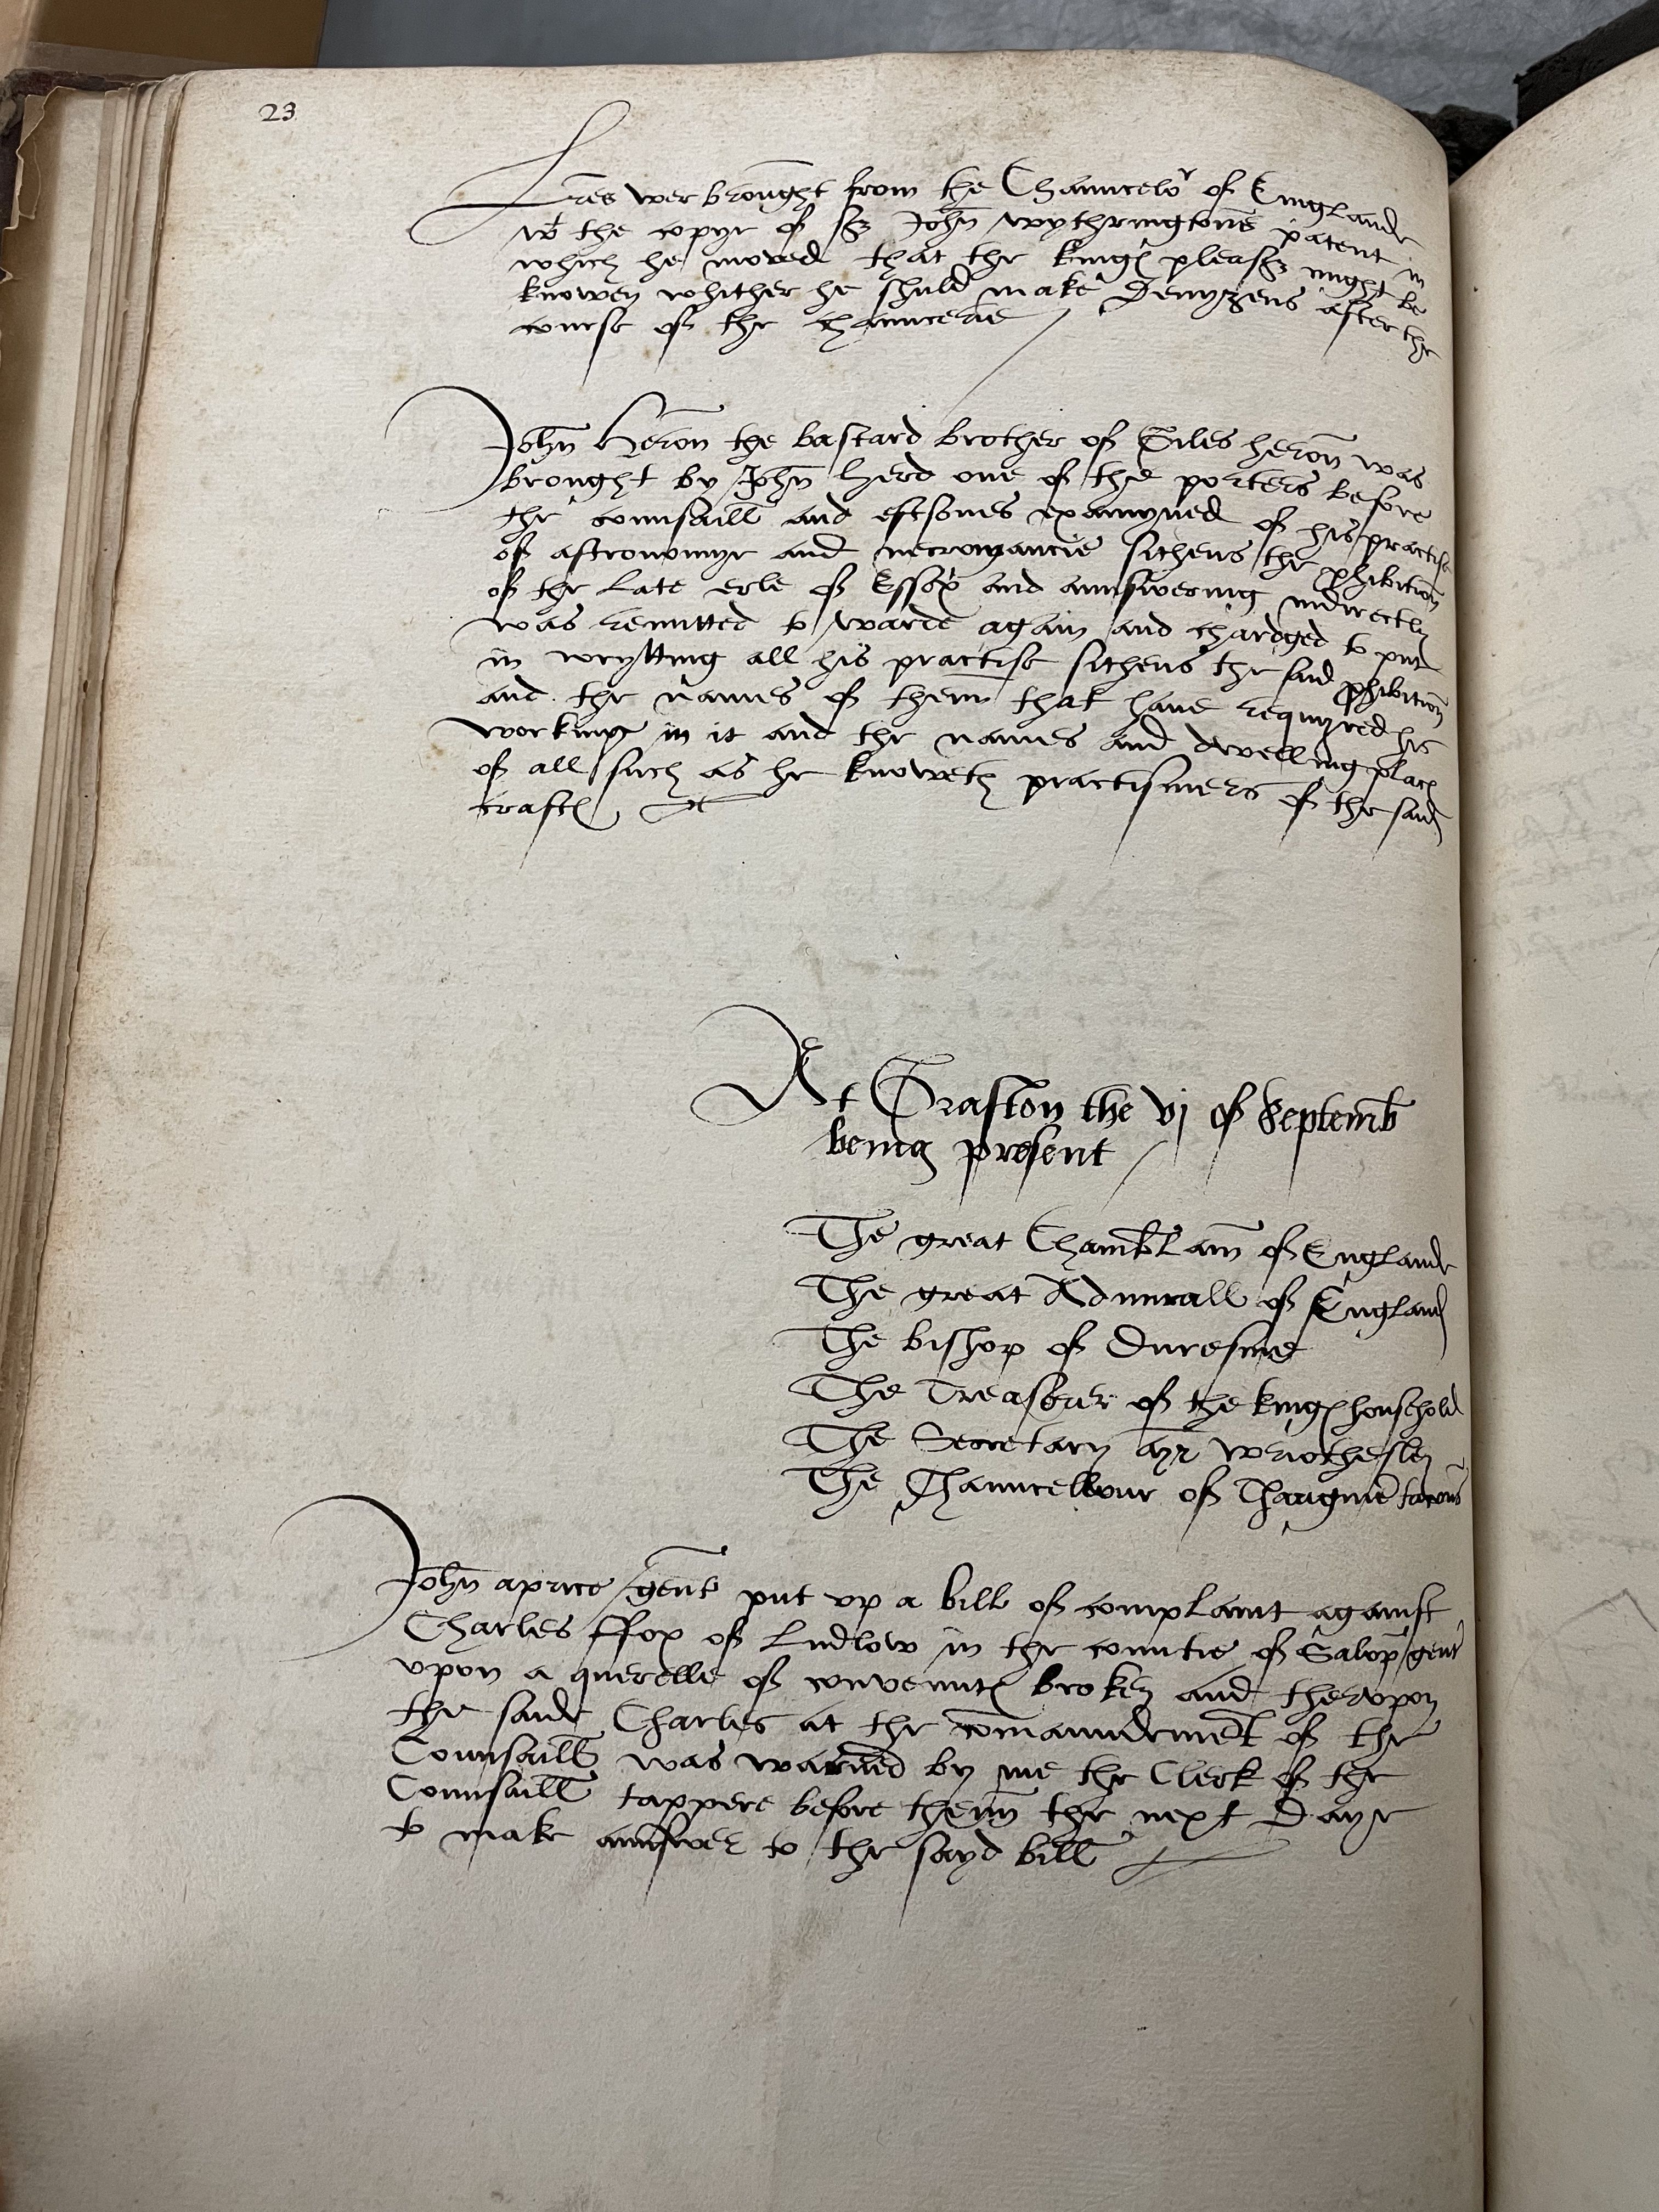 23
Lres wer brought from the Chauncelor of Englande
wt the copye of Sr John wythringtons patent in
which he moved that the kings pleasr might be
knowen whither he shuld make Denyzens after the
course of the chauncerie
John Heron the bastard brother of Giles heron was
brought by John herd one of the porters before
the counsaill and eftsones examyned of his practise
of astronomye and necromancie sithens the phibition
of the late erle of Essex and aunswering indirectly
was remitted to warde again and chardged to put
in wrytting all his practise sithens the said phibition
and the names of them that have requyred his
working in it and the names and dwelling places
of all such as he knoweth practismers of the said
crafts
At Grafton the vj of Septemb
being present
The great Chamblain of Englande
The great Admirall of England
The bishop of Duresme
The Treasurer of the kings houshold
The Secretary Wriothesley
The Chauncellour of Thaugmetacons
John aprice gent put vp a bill of complaint against
Charles ffox of Ludlow in the countie of Salop gent
vpon a querelle of covennts broken and thervpon
the saide Charles at the comaundemet of the
Counsaill was warned by me the Clerk of the
Counsaill tappere before them the next Daye
to make aunswer to the sayd bill